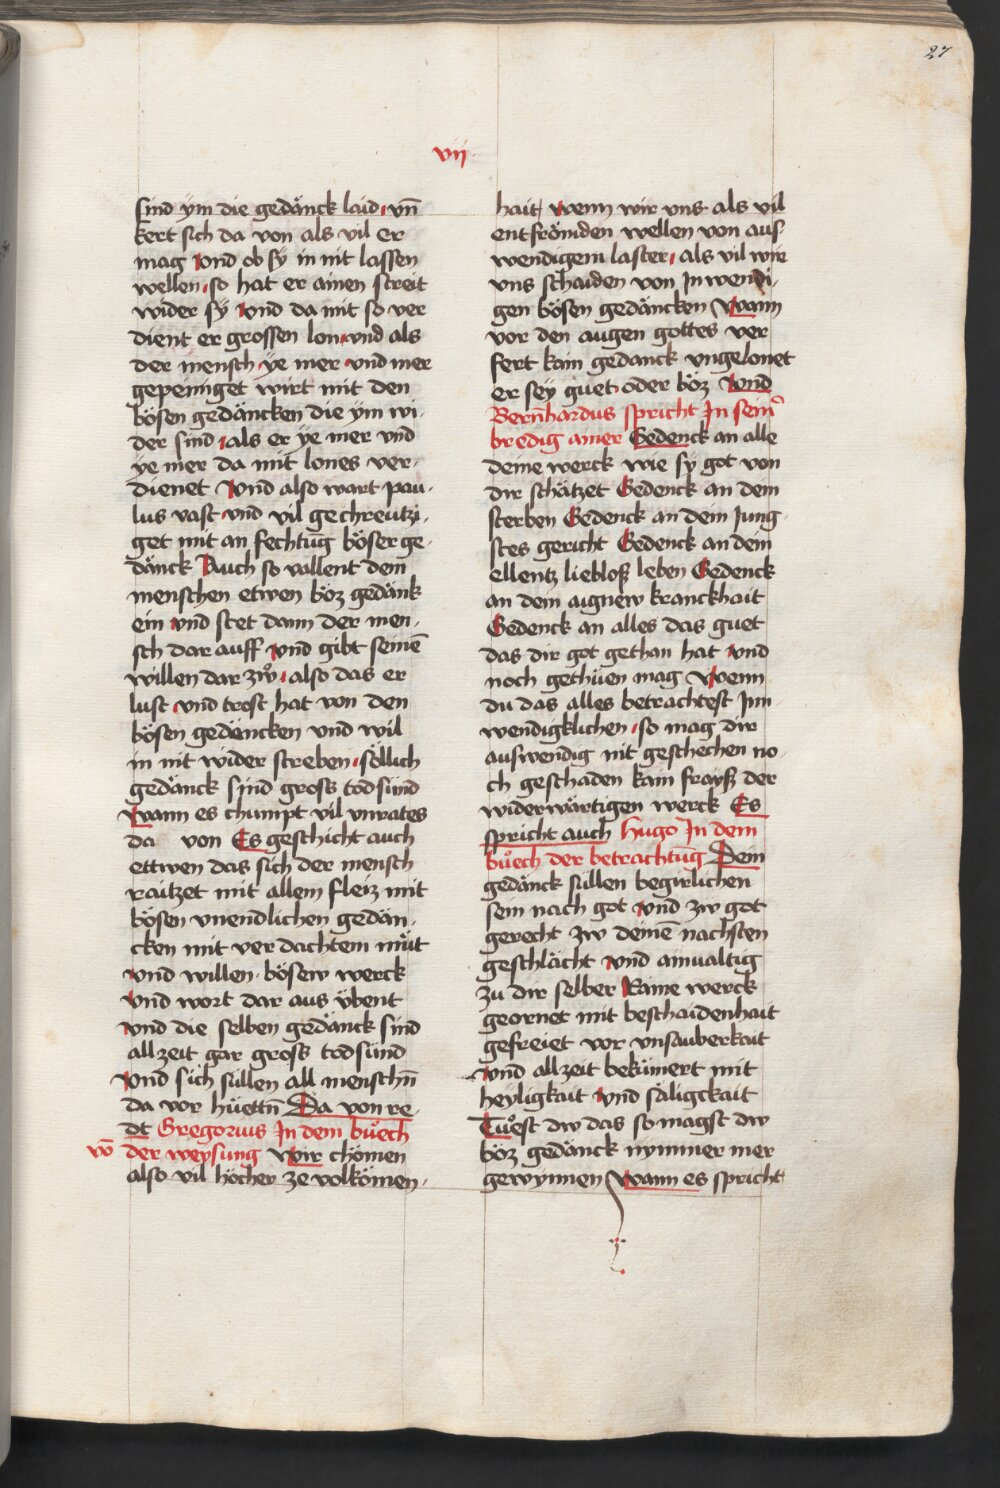 27
vij
sind ÿm die gedänck laid, vn̄
kert sich da von als vil er
mag vnd ob sÿ in nit lassen
wellen, so hat er ainen streit
wider sÿ vnd da mit so ver
dient er grossen lon, vnd als
der mensch ÿe mer vnd mer
gepeiniget wirt mit den
bösen gedäncken die ÿm wi-
der sind, als er ÿe mer vnd
ye mer da mit lones ver-
dienet Vnd also wart pau-
lus vast vnd vil gechreutzi-
get mit an fechtūg böser ge-
dänck Auch so vallent dem
menschen etwen böz gedänk
ein vnd stet dann der men-
sch dar auff vnd gibt seinē
willen dar zwͦ, also das er
lust vnd trost hat von den
bösen gedäncken vnd wil
in nit wider streben, söllich
gedänck sind gross todsünd
Wann es chumpt vil vnrates
da von Es geschicht auch
ettwen das sich der mensch
raitzet mit allem fleiz mit
bösen vnendlichen gedän-
cken mit verdachtem müt
vnd willen bösew werck
vnd wort dar aus übent
vnd die selben gedänck sind
allzeit gar gross todsünd
Vnd sich süllen all menschn̄
da vor hüettn̄ Da von re-
dt Gregorius In dem buͦch
vō der weysung Wir chömen
also vil höcher ze volkömen-
hait, wenn wir vns als vil
entfrömden wellen von aus
wendigem laster, als vil wir
vns schaiden von Inwendi-
gen bösen gedäncken Wann
vor den augen gottes ver
fert kain gedanck vngelonet
er sey guet oder böz Vnd
Bern̄hardus spricht In sein̾
bredig ainer Gedenck an alle
deine werck wie sy got von
dir schätzet Gedenck an dem
sterben Gedenck an dem Jung-
stes gericht Gedenck an dem
ellentz lieblosz leben Gedenck
an dem aignew kranckhait
Gedenck an alles das guet
das dir got gethan hat vnd
noch gethüen mag Wenn
du das alles betrachtest Inn
wendigklichen, so mag dir
auswendig nit geschechen no-
ch geschaden kain fraysz der
widerwärtigen werck Es
spricht auch Hugo In dem
buͦech der betrachtūg Dein
gedänck sullen begirlichen
sein nach got vnd zw got
gerecht zw deinē nächsten
geschlächt vnd ainualtig
zu dir selber Raine werck
geornet mit beschaidenhait
gefreiet vor vnsauberkait
vnd allzeit bekümert mit
heyligkait vnd säligckait
Tuͦest dw das so magst dw
böz gedänck nymmer mer
gewynnen Wann es spricht